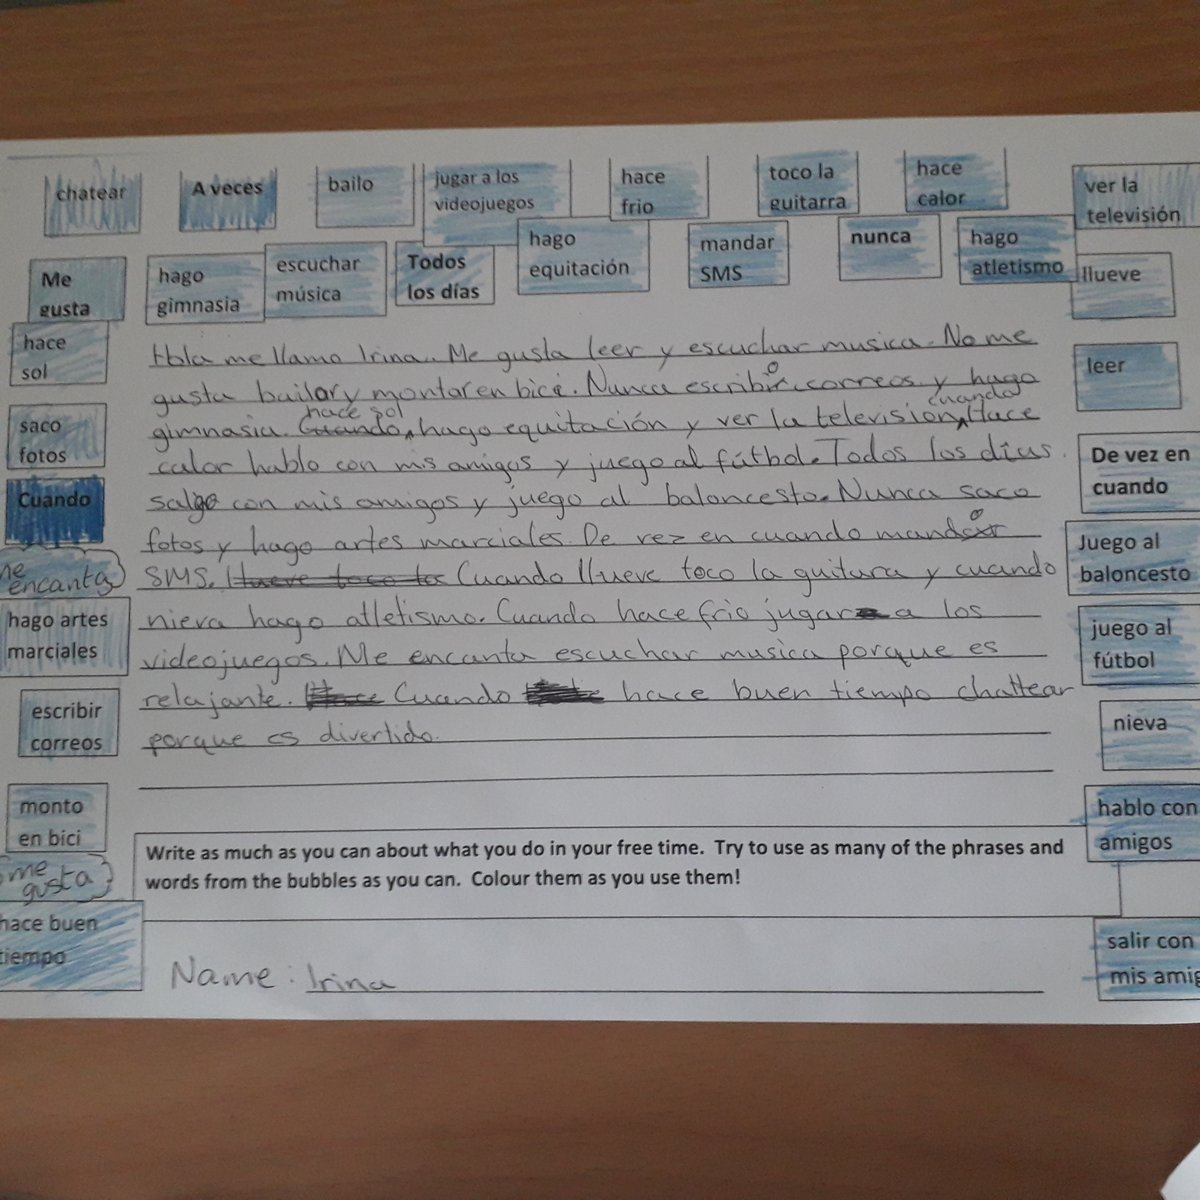 chatear
A veces
bailo
jugar a los
videojuegos
hace
frio
toco la
guitarra
hace
calor
ver la
televisión
Me
gusta
hago
gimnasia
escuchar
música
Todos
los días
hago
equitación
mandar
SMS
nunca
hago
atletismo
llueve
hace
sol
leer
saco
fotos
De vez en
cuando
Cuando
me
encanta
Juego al
baloncesto
hago artes
marciales
juego al
fútbol
escribir
correos
nieva
monto
en bici
hablo con
amigos
me
gusta
hace buen
tiempo
salir con
mis amig
Hola me llamo Irina. Me gusta leer y escuchar musica. No me
gusta bailar y montar en bici. Nunca escribo correos y hago
hace sol cuando
gimnasia. Cuando hago equitación y ver la television, Hace
calor hablo con mis amigos y juego al fútbol. Todos los días
salgo con mis amigos y juego al baloncesto. Nunca saco
fotos y hago artes marciales. De vez en cuando mando
SMS. Llueve toco la Cuando llueve toco la guitura y cuando
nieva hago atletismo. Cuando hace frio jugar a los
videojuegos. Me encanta escuchar musica porque es
relajante. Hace Cuando hace buen tiempo chattear
porque es divertido.
Write as much as you can about what you do in your free time. Try to use as many of the phrases and
words from the bubbles as you can. Colour them as you use them!
Name: Irina